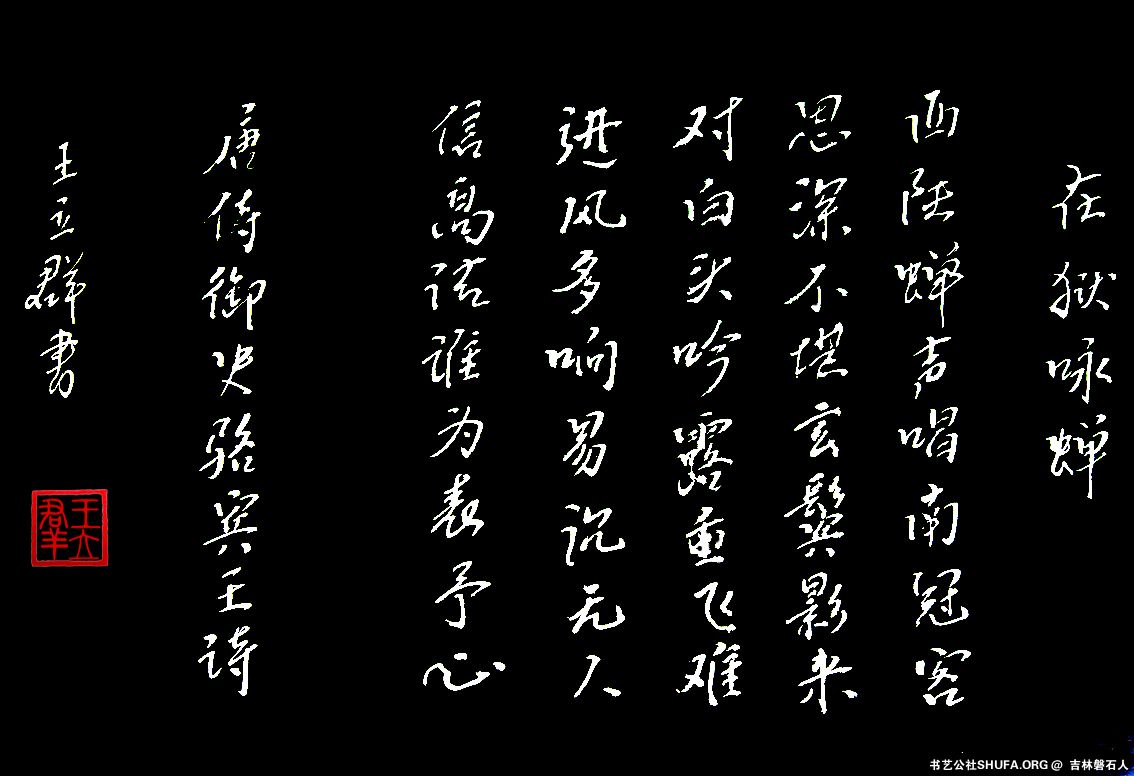 在狱咏蝉
西陆蝉声唱南冠客
思深不堪玄鬓影来
对白头吟露重飞难
进风多响易沉无人
信高洁谁为表予心
唐侍御史骆宾王诗
王立群书
王立群
书艺公社SHUFA.ORG @ 吉林磐石人